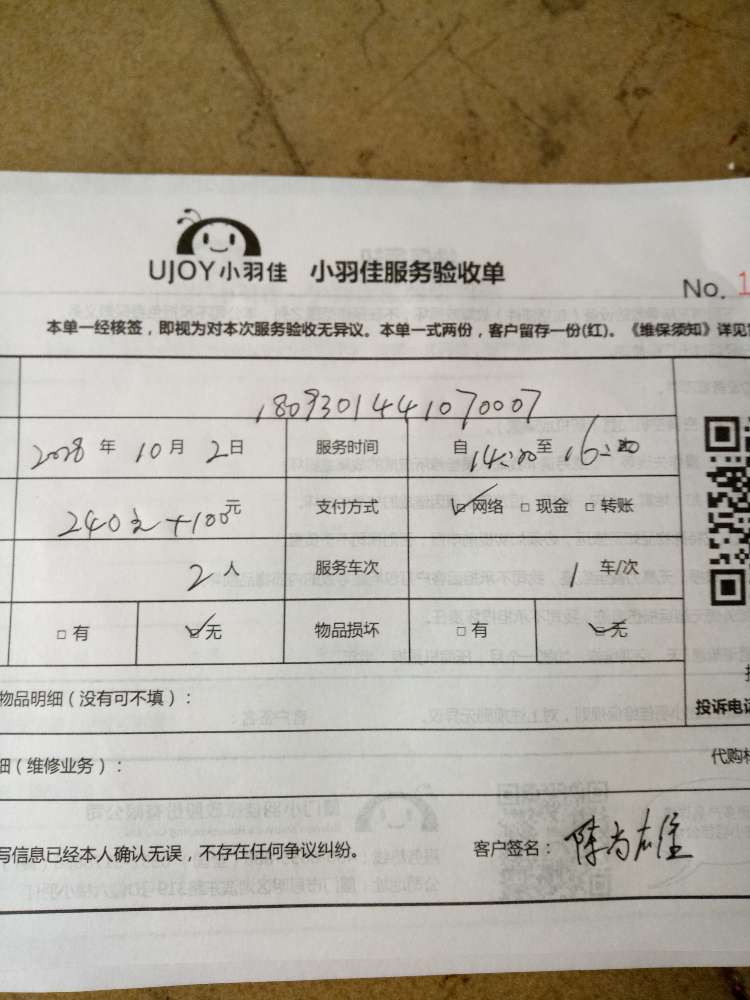 UJOY小羽佳 小羽佳服务验收单
No. 1
本单一经核签，即视为对本次服务验收无异议。本单一式两份，客户留存一份(红)。《维保须知》详见
1809301441070007
年 10月 2日 服务时间 自14:00至16:00
240元+100元 支付方式 网络 现金 转账
2人 服务车次 1 车/次
有 无 物品损坏 有 无
物品明细（没有可不填）：
投诉电话
细（维修业务）：
代购材
写信息已经本人确认无误，不存在任何争议纠纷。 客户签名：陈尚雄